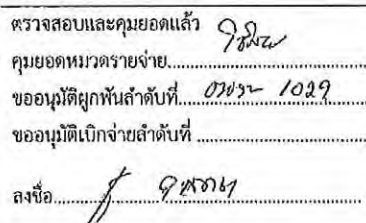 ตรวจสอบและคุมยอดแล้ว
คุมยอดหมวดรายจ่าย
ขออนุมัติผูกพันลำดับที่ 1029
ขออนุมัติเบิกจ่ายลำดับที่
ลงชื่อ